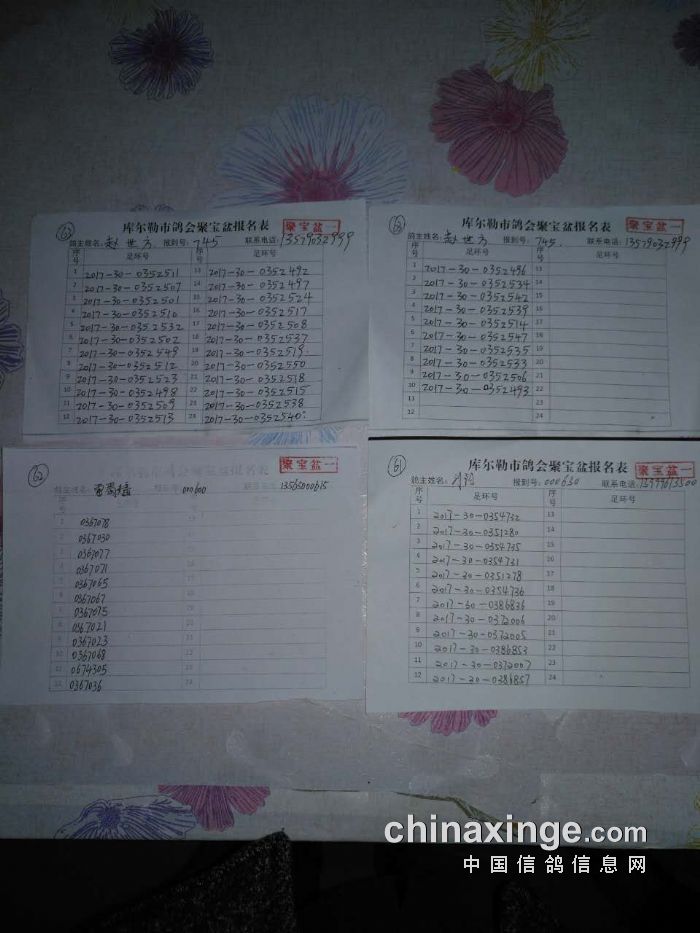 63
库尔勒市鸽会聚宝盆报名表 聚宝盆一
鸽主姓名: 赵世方 报到号: 745 联系电话: 13579032999
序号 足环号 序号 足环号
1 2017-30-0352511 13 2017-30-0352492
2 2017-30-0352507 14 2017-30-0352497
3 2017-30-0352501 15 2017-30-0352524
4 2017-30-0352510 16 2017-30-0352517
5 2017-30-0352532 17 2017-30-0352508
6 2017-30-0352502 18 2017-30-0352537
7 2017-30-0352549 19 2017-30-0352519
8 2017-30-0352512 20 2017-30-0352550
9 2017-30-0352523 21 2017-30-0352518
10 2017-30-0352498 22 2017-30-0352515
11 2017-30-0352509 23 2017-30-0352538
12 2017-30-0352513 24 2017-30-0352540
库尔勒市鸽会聚宝盆报名表 聚宝盆一
鸽主姓名: 赵世方 报到号: 745. 联系电话: 13579032999
序号 足环号 序号 足环号
1 2017-30-0352496 13
2 2017-30-0352534 14
3 2017-30-0352542 15
4 2017-30-0352539 16
5 2017-30-0352514 17
6 2017-30-0352547 18
7 2017-30-0352535 19
8 2017-30-0352533 20
9 2017-30-0352506 21
10 2017-30-0352493 22
11 23
12 24
62
库尔勒市鸽会聚宝盆报名表 聚宝盆一
鸽主姓名: 报到号: 000600
序号 足环号
1 0367078
2 0367030
3 0367077
4 0367071
5 0367065
6 0367067
7 0367075
8 0367021
9 0367023
10 0367068
11 0674305
12 0367036
61
库尔勒市鸽会聚宝盆报名表 聚宝盆一
鸽主姓名: 报到号: 000630 联系电话:
序号 足环号 序号 足环号
1 2017-30-0354732 13
2 2017-30-0351280 14
3 2017-30-0354735 15
4 2017-30-0354731 16
5 2017-30-0351278 17
6 2017-30-0354736 18
7 2017-30-0386836 19
8 2017-30-0372006 20
9 2017-30-0372005 21
10 2017-30-0386853 22
11 2017-30-0372007 23
12 2017-30-0386857 24
chinaxinge.com
中国信鸽信息网